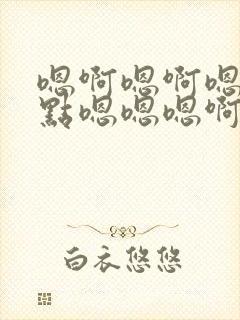 嗯啊嗯啊嗯
點嗯嗯嗯啊
白衣悠悠